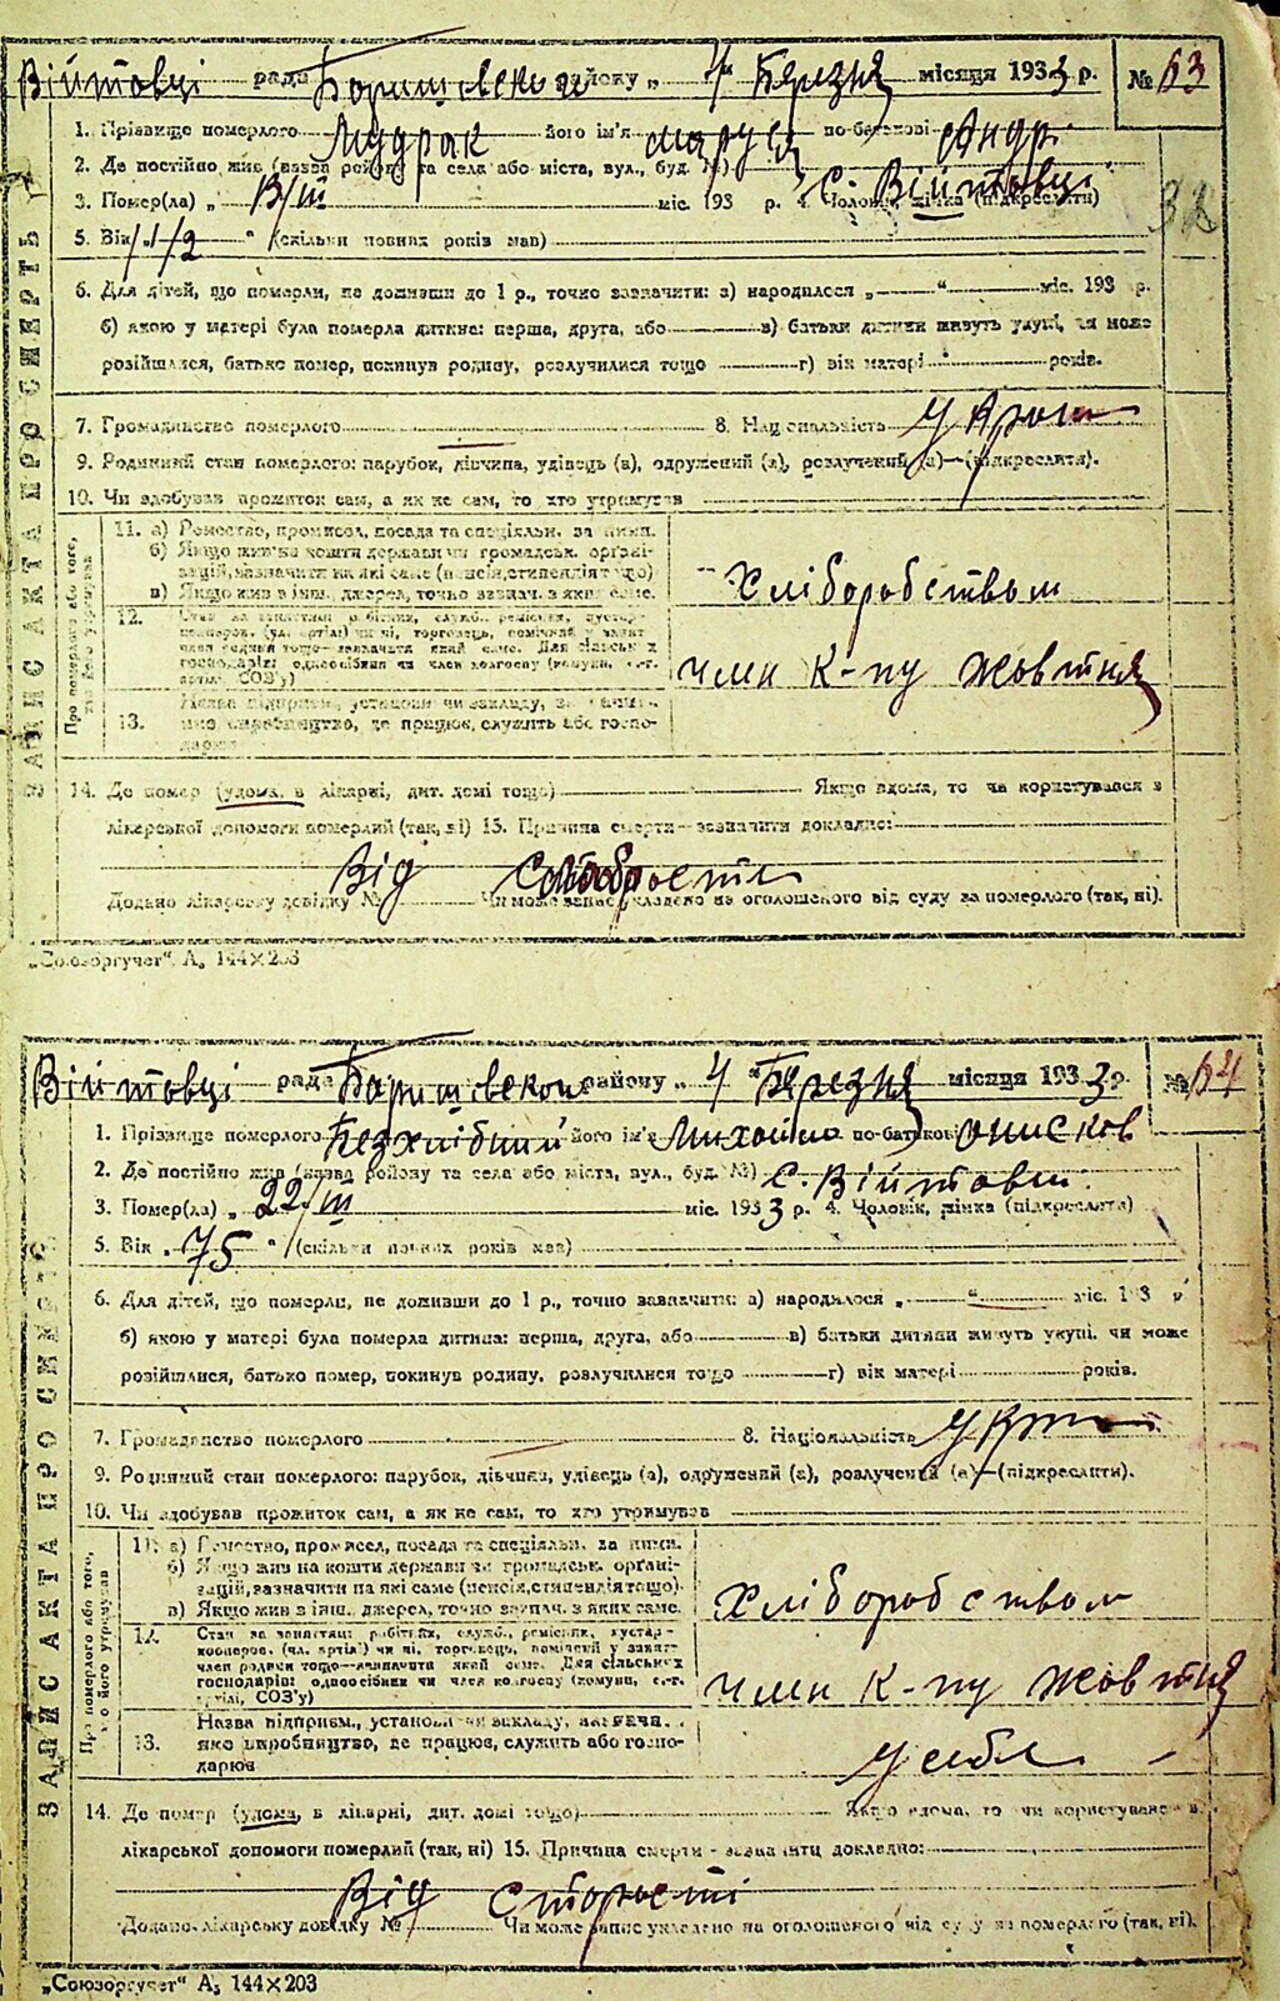 ЗАПИС АКТА ПРО СМЕРТЬ
Війтовці рада Баришевськои району „4“ Березня місяця 1933 р. № 63
1. Прізвище померлого Мудрак його ім'я Маруся по-батькові Андр.
2. Де постійно жив (назва району та села або міста, вул., буд. №) С. Війтовці
3. Помер(ла) „ /III міс. 193 р. 4. Чоловік, жінка (підкреслити)
38
5. Вік „1/2“ (скільки повних років мав)
6. Для дітей, що померли, не доживши до 1 р., точно зазначити: а) народилося „ “ міс. 193 р.
б) якою у матері була померла дитина: перша, друга, або в) батьки дитини живуть укупі, чи може
розійшлися, батько помер, покинув родину, розлучилися тощо г) вік матері років.
7. Громадянство померлого 8. Національність
9. Родинний стан померлого: парубок, дівчина, удівець (а), одружений (а), розлучений (а)—(підкреслити).
10. Чи здобував прожиток сам, а як не сам, то хто утримував
Про померлого або того, хто його утримував
11. а) Ремество, промисел, посада та спеціяльн. за ними.
б) Якщо жив на кошти держави чи громадськ. орґані-
зацій, зазначити на які саме (пенсія, стипендія тощо)
в) Якщо жив з інш. джерел, точно зазнач. з яких саме.
Хліборобством
12. Стан за заняттям: робітник, служб., ремісник, кустар-
кооперов. (чл. артілі) чи ні, торговець, помічний у занят.
член родини тощо—зазначити який саме. Для сільських
господарів: одноосібник чи член колгоспу (комуни, с.-г.
артілі, СОЗ'у)
член к-пу Жовтня
13. Назва підприєм., установи чи закладу, зазначи-
яке виробництво, де працює, служить або госпо-
дарює
14. Де помер (удома, в лікарні, дит. домі тощо) Якщо вдома, то чи користувався з
лікарської допомоги померлий (так, ні) 15. Причина смерти—зазначити докладно:
Від
Додано лікарську довідку № Чи може запис укладено на оголошеного від суду за померлого (так, ні).
„Союзоргучет“ А₅ 144×203
ЗАПИС АКТА ПРО СМЕРТЬ
Війтовці рада Баришевськои району „4“ Березня місяця 1933 р. № 64
1. Прізвище померлого Безхлібний його ім'я Михайло по-батькові Онисков
2. Де постійно жив (назва району та села або міста, вул., буд. №) С. Війтовці
3. Помер(ла) „22/III міс. 1933 р. 4. Чоловік, жінка (підкреслити)
5. Вік „75“ (скільки повних років мав)
6. Для дітей, що померли, не доживши до 1 р., точно зазначити: а) народилося „ “ міс. 193 р.
б) якою у матері була померла дитина: перша, друга, або в) батьки дитини живуть укупі, чи може
розійшлися, батько помер, покинув родину, розлучилися тощо г) вік матері років.
7. Громадянство померлого 8. Національність
9. Родинний стан померлого: парубок, дівчина, удівець (а), одружений (а), розлучений (а)—(підкреслити).
10. Чи здобував прожиток сам, а як не сам, то хто утримував
Про померлого або того, хто його утримував
11. а) Ремество, промисел, посада та спеціяльн. за ними.
б) Якщо жив на кошти держави чи громадськ. орґані-
зацій, зазначити на які саме (пенсія, стипендія тощо).
в) Якщо жив з інш. джерел, точно зазнач. з яких саме.
Хліборобством
12. Стан за заняттям: робітник, служб., ремісник, кустар-
кооперов. (чл. артілі) чи ні, торговець, помічний у занят.
член родини тощо—зазначити який саме. Для сільських
господарів: одноосібник чи член колгоспу (комуни, с.-г.
артілі, СОЗ'у)
член к-пу Жовтня
13. Назва підприєм., установи чи закладу, зазначи.
яке виробництво, де працює, служить або госпо-
дарює
У себе
14. Де помер (удома, в лікарні, дит. домі тощо) Якщо вдома, то чи користувався з
лікарської допомоги померлий (так, ні) 15. Причина смерти - зазначити докладно:
Від старості
Додано лікарську довідку № Чи може запис укладено на оголошеного від суду за померлого (так, ні).
„Союзоргучет“ А₅ 144×203